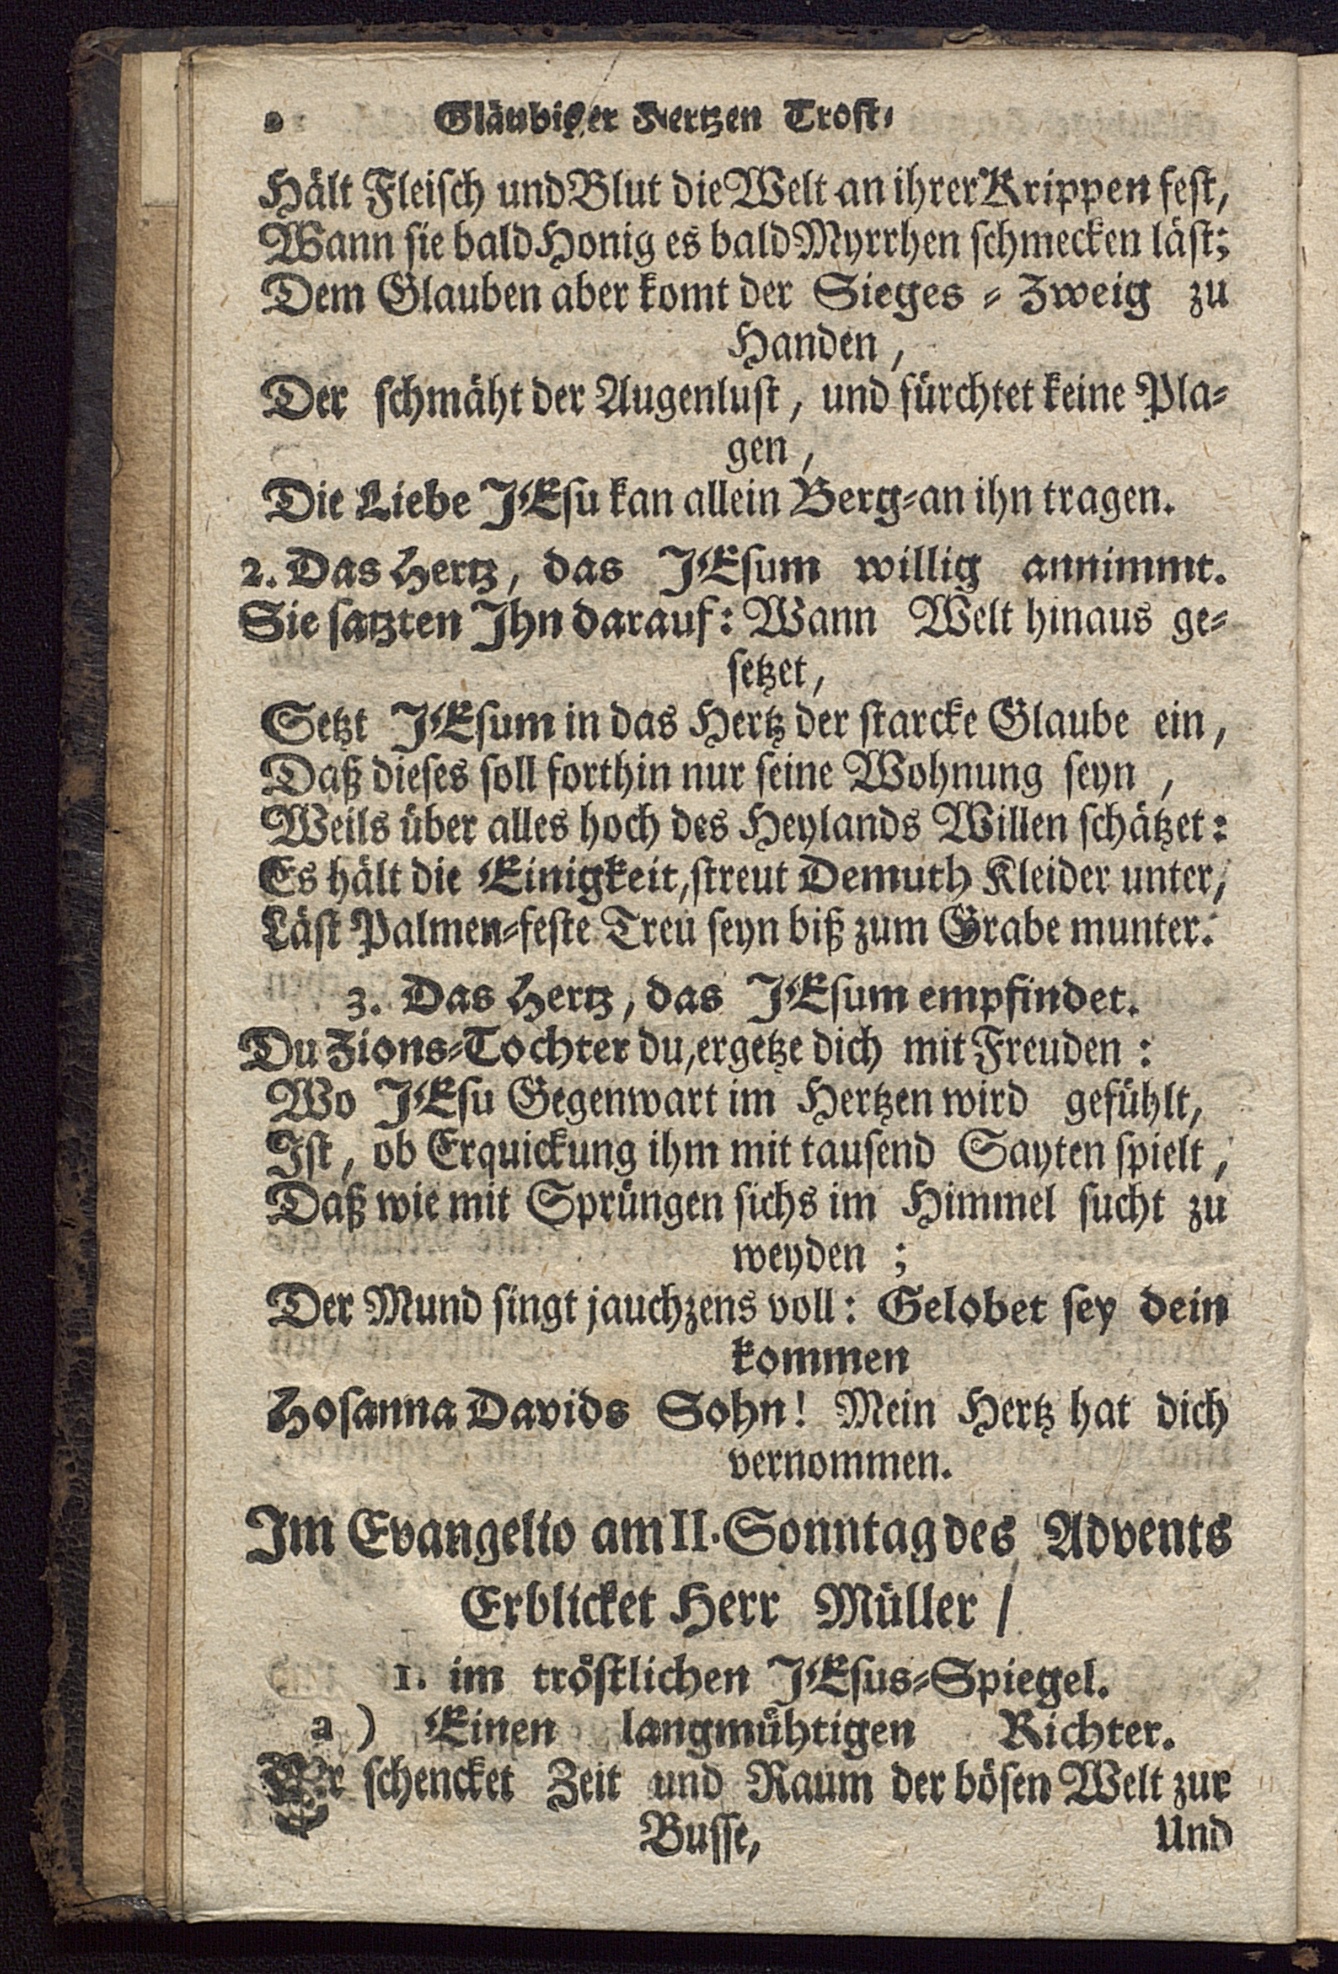 Gläubiger Hertzen Trost⸗
Hält Fleisch und Blut die Welt an ihrer Krippen fest,
Wann sie bald Honig es bald Myrrhen schmecken läst;
Dem Glauben aber komt der Sieges ⸗ Zweig zu
Handen,
Der schmäht der Augenlust, und fürchtet keine Pla⸗
gen,
Die Liebe JEsu kan allein Berg⸗an ihn tragen.
2. Das Hertz, das JEsum willig annimmt.
Sie satzten Ihn darauf: Wann Welt hinaus ge⸗
setzet,
Setzt JEsum in das Hertz der starcke Glaube ein,
Daß dieses soll forthin nur seine Wohnung seyn,
Weils über alles hoch des Heylands Willen schätzet:
Es hält die Einigkeit, streut Demuth Kleider unter,
Läst Palmen⸗feste Treu seyn biß zum Grabe munter.
3. Das Hertz, das JEsum empfindet.
Du Zions⸗Tochter du, ergetze dich mit Freuden:
Wo JEsu Gegenwart im Hertzen wird gefühlt,
Ist, ob Erquickung ihm mit tausend Sayten spielt,
Daß wie mit Sprüngen sichs im Himmel sucht zu
weyden;
Der Mund singt jauchzens voll: Gelobet sey dein
kommen
Hosanna Davids Sohn! Mein Hertz hat dich
vernommen.
Im Evangelio am II. Sonntag des Advents
Erblicket Herr Müller /
1. im tröstlichen JEsus⸗Spiegel.
a) Einen langmühtigen Richter.
Er schencket Zeit und Raum der bösen Welt zur
Busse, Und